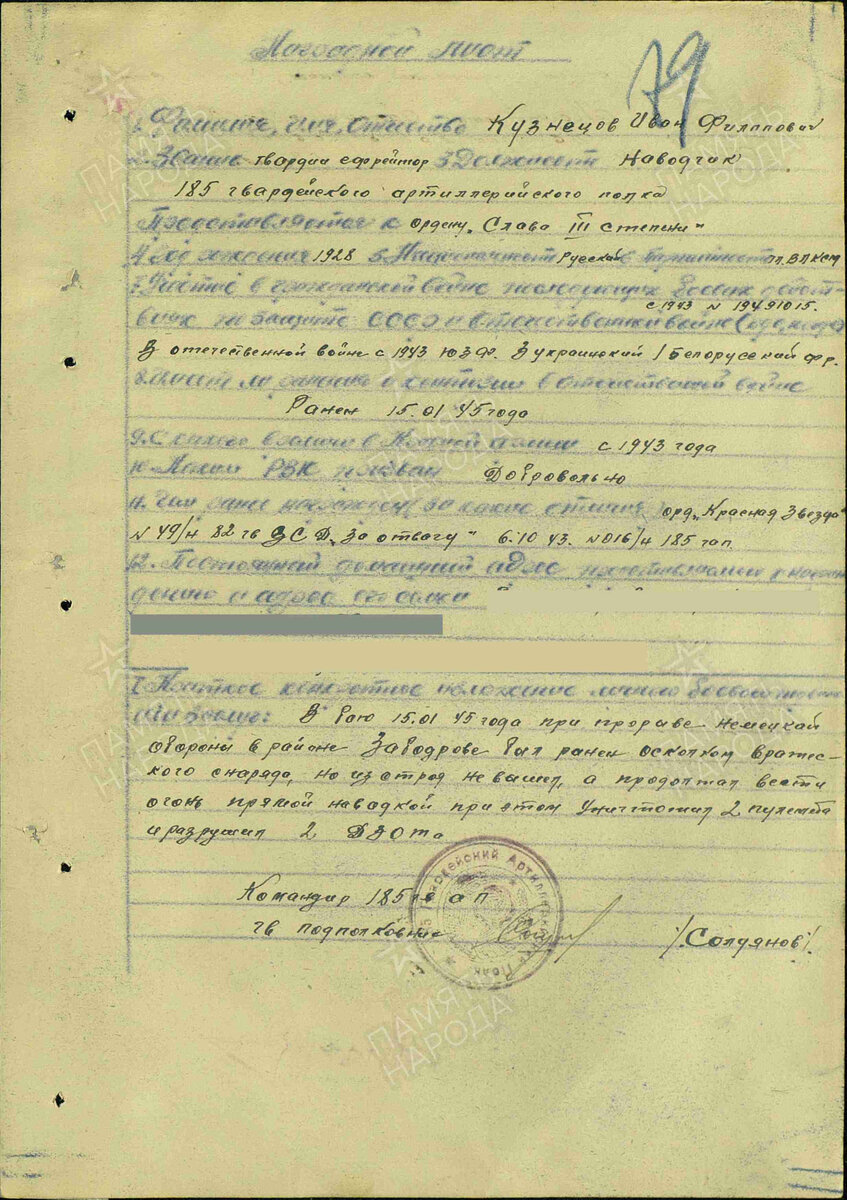 Наградной лист
79
1. Фамилия, имя, отчество Кузнецов Иван Филиппович
2. Звание гвардии ефрейтор 3 Должность наводчик
185 гвардейского артиллерийского полка
Представляется к ордену „Слава III степени"
4. Год рождения 1928 5. Национальность Русский 6. Партийность чл. ВЛКСМ
7. Участие в гражданской войне последующих боевых действ-
с 1943 N 19491015.
виях по защите СССР и отечественной войне (где, когда)
В отечественной войне с 1943 ЮЗФ. 3 украинский 1 Белорусский фр.
8. Имеет ли ранения и контузии в отечественной войне
Ранен 15.01 45 года
9. С какого времени в Красной армии с 1943 года
10. Каким РВК призван Добровольно
11. Чем ранее награжден (за какие отличия) орд „Красная Звезда"
N 49/н 82 гв ЗСД „За отвагу" 6.10 43. N 016/н 185 гап.
12. Постоянный домашний адрес представляемого к награж-
дению и адрес его семьи
I. Краткое конкретное изложение личного боевого
В бою 15.01 45 года при прорыве немецкой
обороны в районе Заводрове был ранен осколком вражес-
кого снаряда, но из строя не вышел, а продолжал вести
огонь прямой наводкой при этом уничтожил 2 пулемета
и разрушил 2 ДЗОТа
Командир 185 гв а п
гв подполковник /Солдянов/
Гвардейский Артиллерийский Полк
ПАМЯТЬ НАРОДА